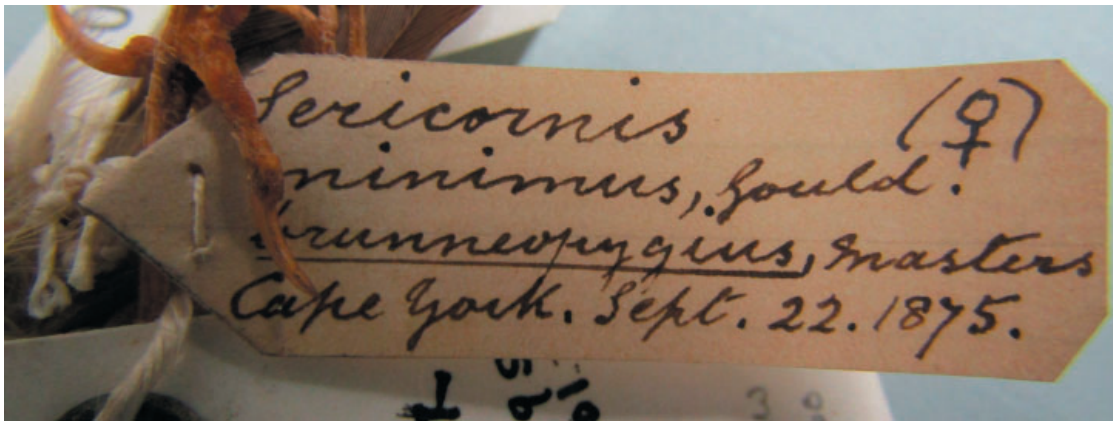 Sericornis (♀)
minimus, Gould.
brunneopygius, Masters
Cape York. Sept. 22. 1875.